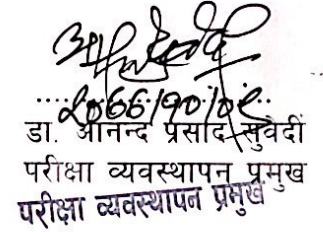 २०७७/१०/०९
डा. आनन्द प्रसाद सुवेदी
परीक्षा व्यवस्थापन प्रमुख
परीक्षा व्यवस्थापन प्रमुख